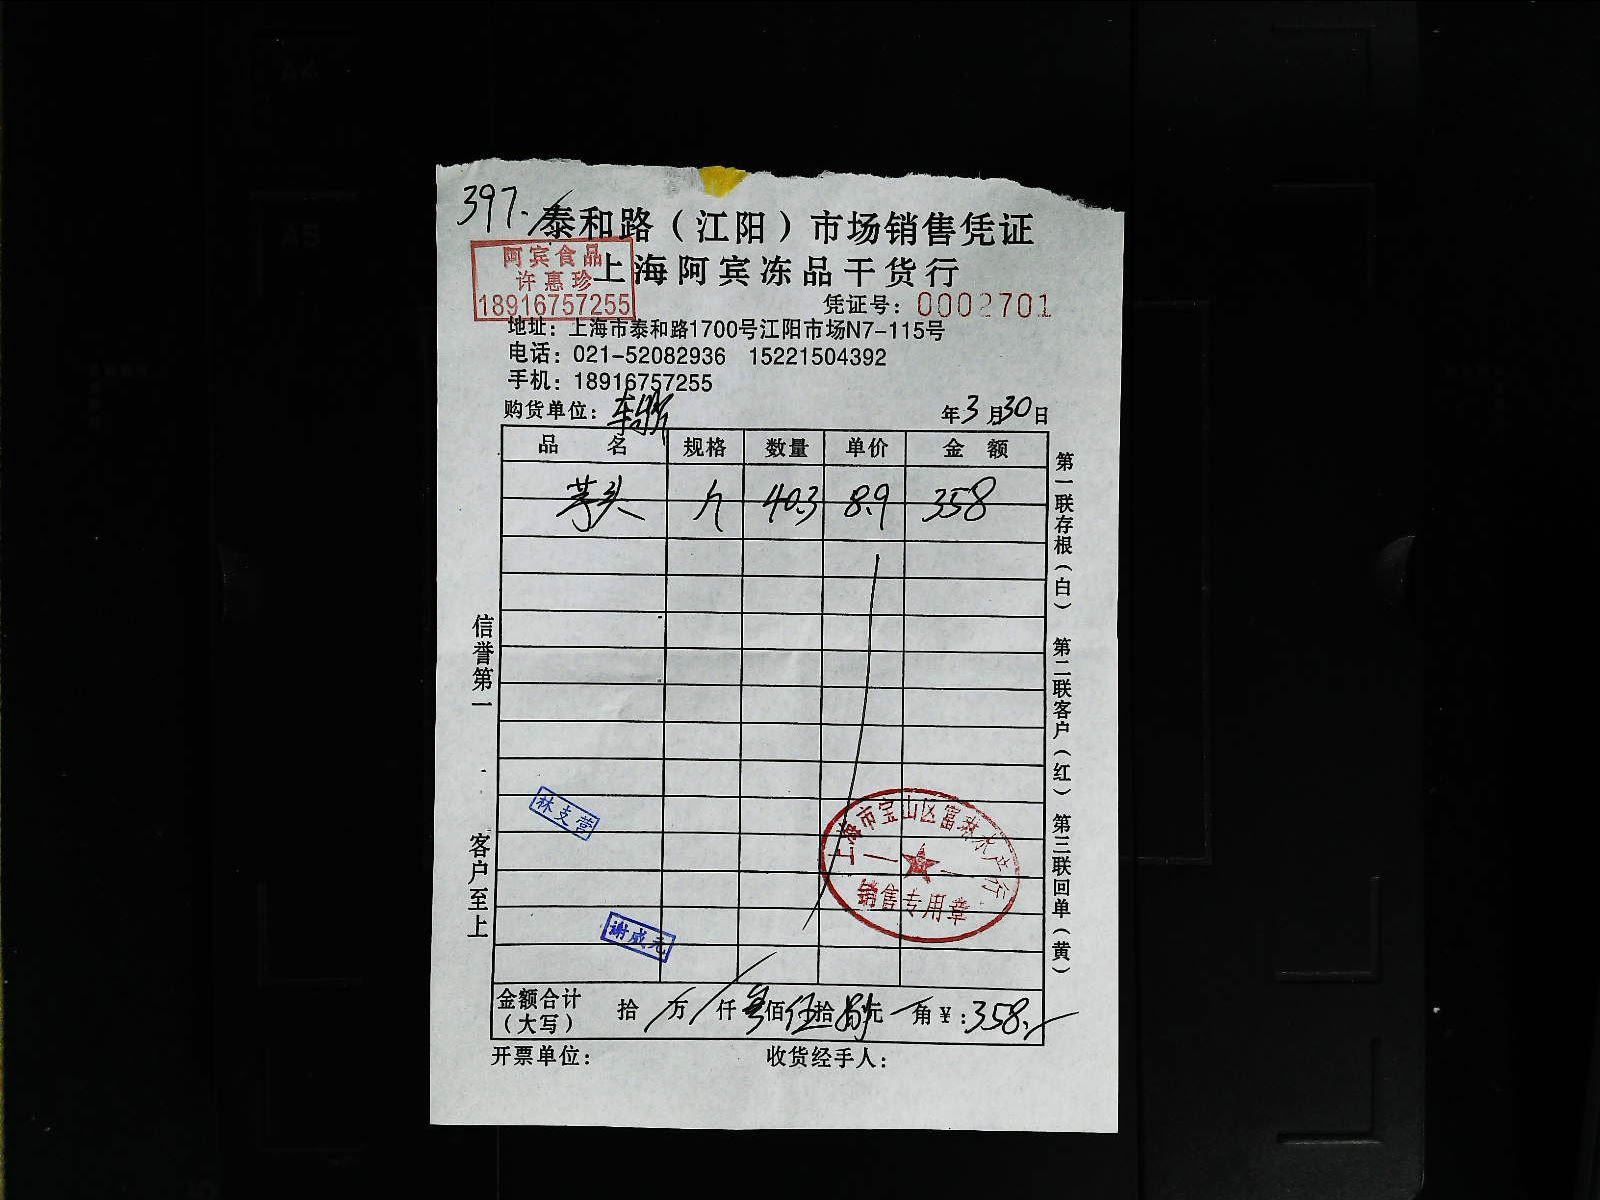 397.
泰和路（江阳）市场销售凭证
上海阿宾冻品干货行
阿宾食品
许惠珍
18916757255
凭证号：0002701
地址：上海市泰和路1700号江阳市场N7-115号
电话：021-52082936 15221504392
手机：18916757255
购货单位： 年3月30日
品名 规格 数量 单价 金额
芋头 斤 40.3 8.9 358
第一联存根（白） 第二联客户（红） 第三联回单（黄）
信誉第一 客户至上
林支营
上海市宝山区富林水产行
销售专用章
谢成元
金额合计（大写） 拾 万 仟 叁佰 伍拾 捌元 角 ￥：358.
开票单位： 收货经手人：